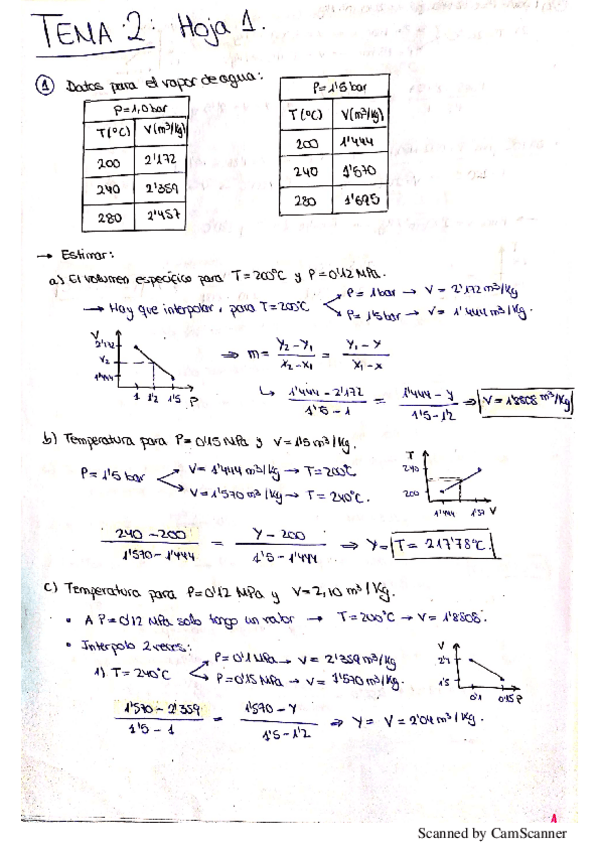 TEMA 2: Hoja 1.
① Datos para el vapor de agua:
P=1,0 bar
T(°C) V(m³/kg)
200 2'172
240 2'359
280 2'457
P=1'5 bar
T(°C) V(m³/kg)
200 1'444
240 1'570
280 1'695
→ Estimar:
a) El volumen específico para T=200°C y P=0'12 MPa.
→ Hay que interpolar, para T=200°C
P=1bar → V=2'172 m³/kg
P=1'5bar → V=1'444 m³/kg.
V
V₂
1'444
1 1'2 1'5 P
⇒ m = (Y₂-Y₁)/(X₂-X₁) = (Y₁-Y)/(X₁-X)
↳ (1'444-2'172)/(1'5-1) = (1'444-Y)/(1'5-1'2) ⇒ V=1'8808 m³/kg
b) Temperatura para P=0'15 MPa y V=1'5 m³/kg.
P=1'5 bar
V=1'444 m³/kg → T=200°C
V=1'570 m³/kg → T=240°C.
T
240
200
1'444 1'57 V
(240-200)/(1'570-1'444) = (Y-200)/(1'5-1'444) ⇒ Y= T=217'78°C.
c) Temperatura para P=0'12 MPa y V=2,10 m³/kg.
• A P=0'12 MPa solo tengo un valor → T=200°C → V=1'8808.
• Interpolo 2 veces:
1) T=240°C
P=0'1 MPa → V=2'359 m³/kg
P=0'15 MPa → V=1'570 m³/kg.
V
1'5
0'1 0'15 P
(1'570-2'359)/(1'5-1) = (1'570-Y)/(1'5-1'2) ⇒ Y= V=2'04 m³/kg.
A
Scanned by CamScanner